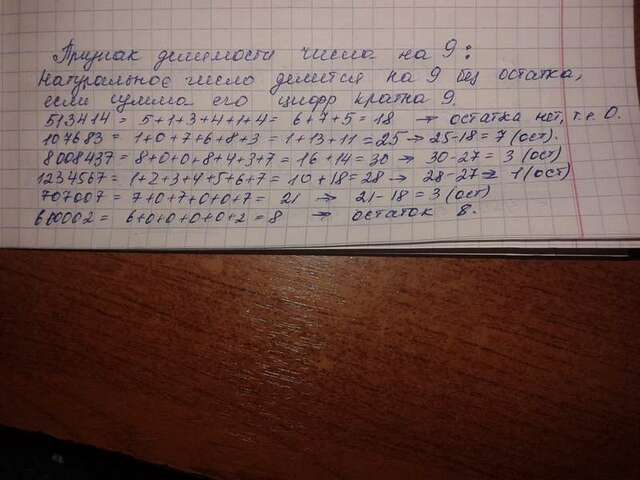 Признак делимости числа на 9:
Натуральное число делится на 9 без остатка,
если сумма его цифр кратна 9.
513414 = 5+1+3+4+1+4= 6+7+5=18 → остатка нет, т.е. 0.
107683 = 1+0+7+6+8+3 = 1+13+11=25 → 25-18=7 (ост).
8008437= 8+0+0+8+4+3+7= 16+14=30 → 30-27= 3 (ост)
1234567= 1+2+3+4+5+6+7= 10+18=28 → 28-27→ 1(ост)
707007 = 7+0+7+0+0+7= 21 → 21-18=3(ост)
600002 = 6+0+0+0+0+2=8 → остаток 8.